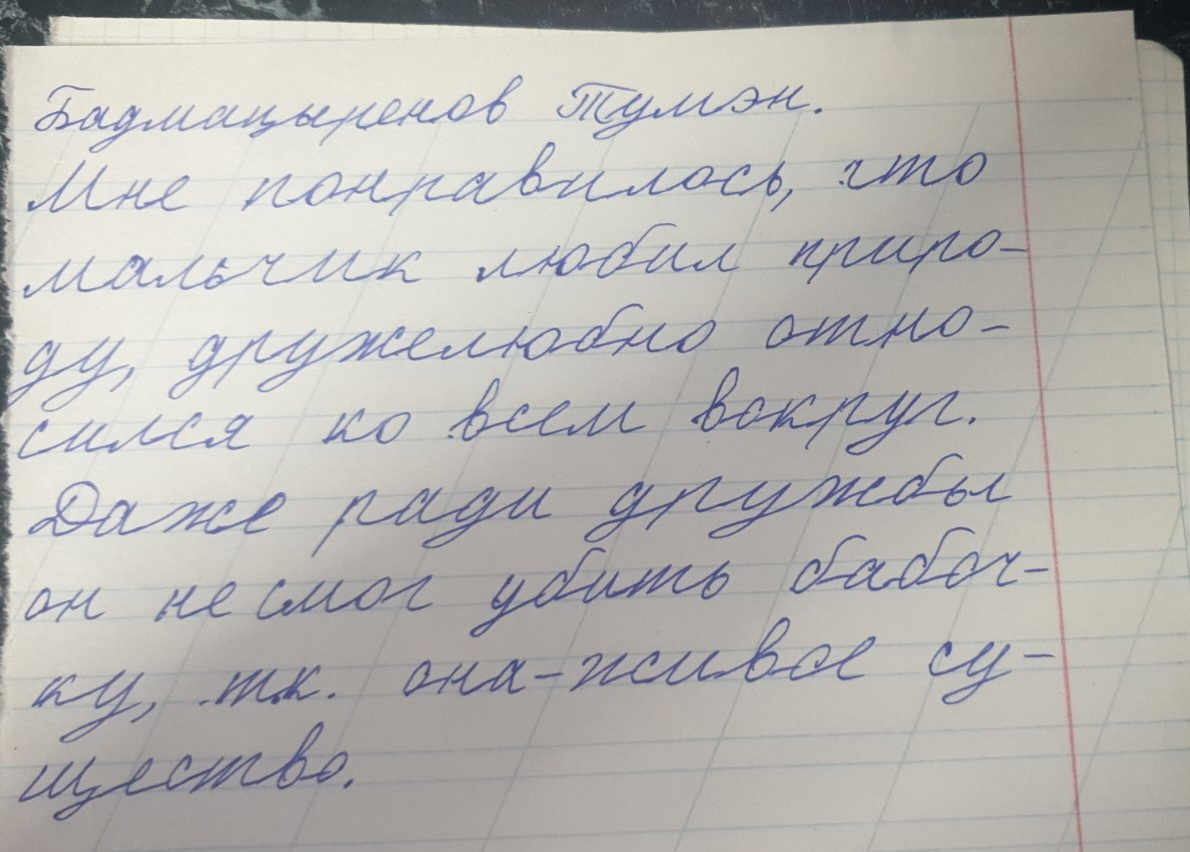 Бадмацыренов Тумэн.
Мне понравилось, что
мальчик любил приро-
ду, дружелюбно отно-
сился ко всем вокруг.
Даже ради дружбы
он не смог убить бабоч-
ку, т.к. она-живое су-
щество.